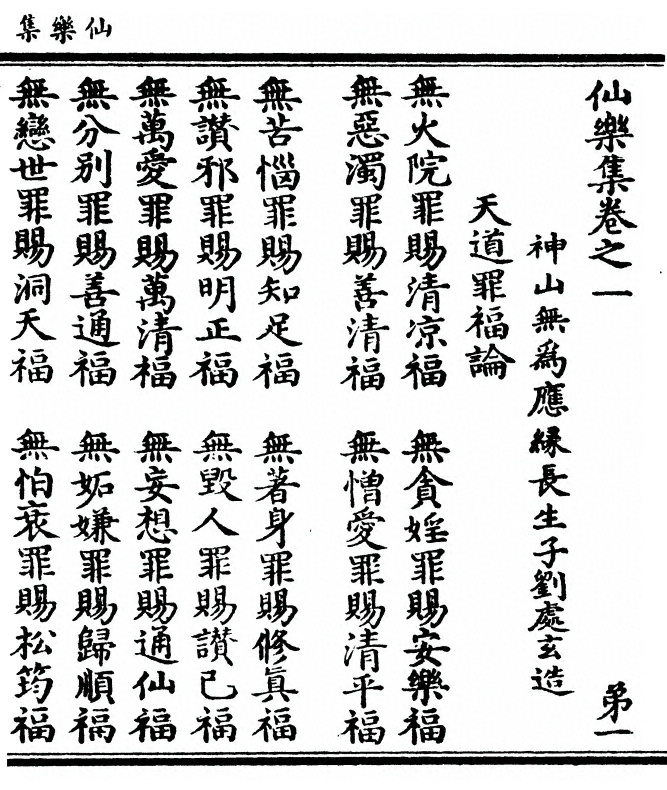 仙樂集
仙樂集卷之一 第一
神山無為應緣長生子劉處玄造
天道罪福論
無火院罪賜清凉福 無貪婬罪賜安樂福
無惡濁罪賜善清福 無憎愛罪賜清平福
無苦惱罪賜知足福 無著身罪賜修眞福
無讃邪罪賜明正福 無毀人罪賜讃已福
無萬愛罪賜萬清福 無妄想罪賜通仙福
無分別罪賜善通福 無妬嫌罪賜歸順福
無戀世罪賜洞天福 無怕衰罪賜松筠福